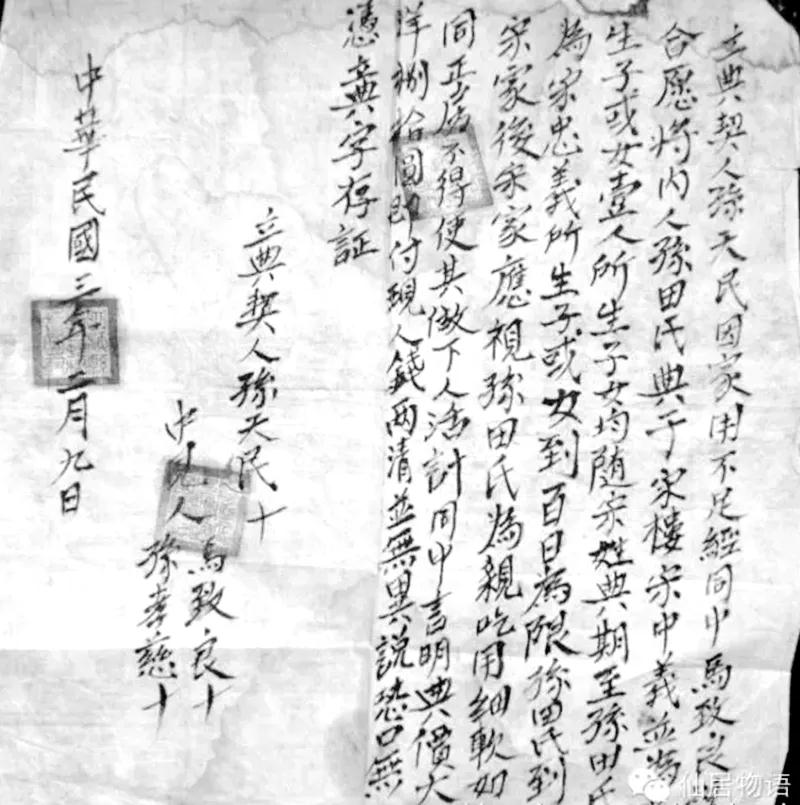 立典契人孫天民因家用不足經同中馬致良
合愿将内人孫田氏典于宋樓宋中義並為
生子或女壹人所生子女均随宋姓典期至孫田氏
為宋忠義所生子或女到百日為限孫田氏到
宋家後宋家應視孫田氏為親吃用細軟如
同正房不得使其做下人活計同中言明典價大
洋捌拾圓即付現人錢两清並無異說恐口無
憑立典字存証
立典契人孫天民十
中見人馬致良十
孫孝慈十
中華民國三年二月九日
仙居物语